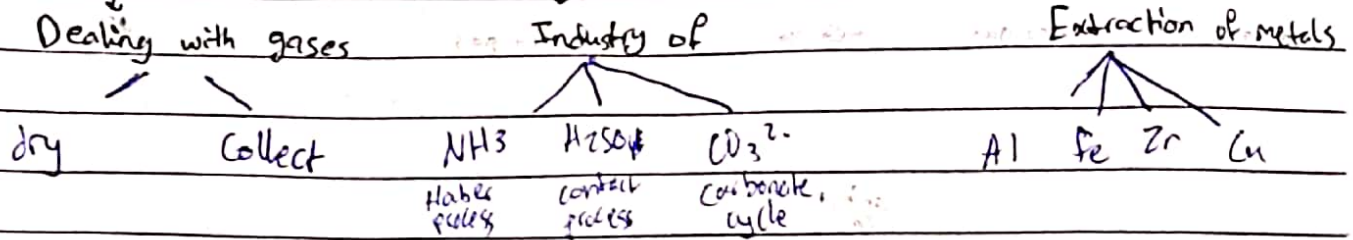 Dealing with gases Industry of Extraction of metals
dry Collect NH3 H2SO4 CO3²⁻ Al Fe Zr Cu
Haber contact Carbonate,
process process cycle